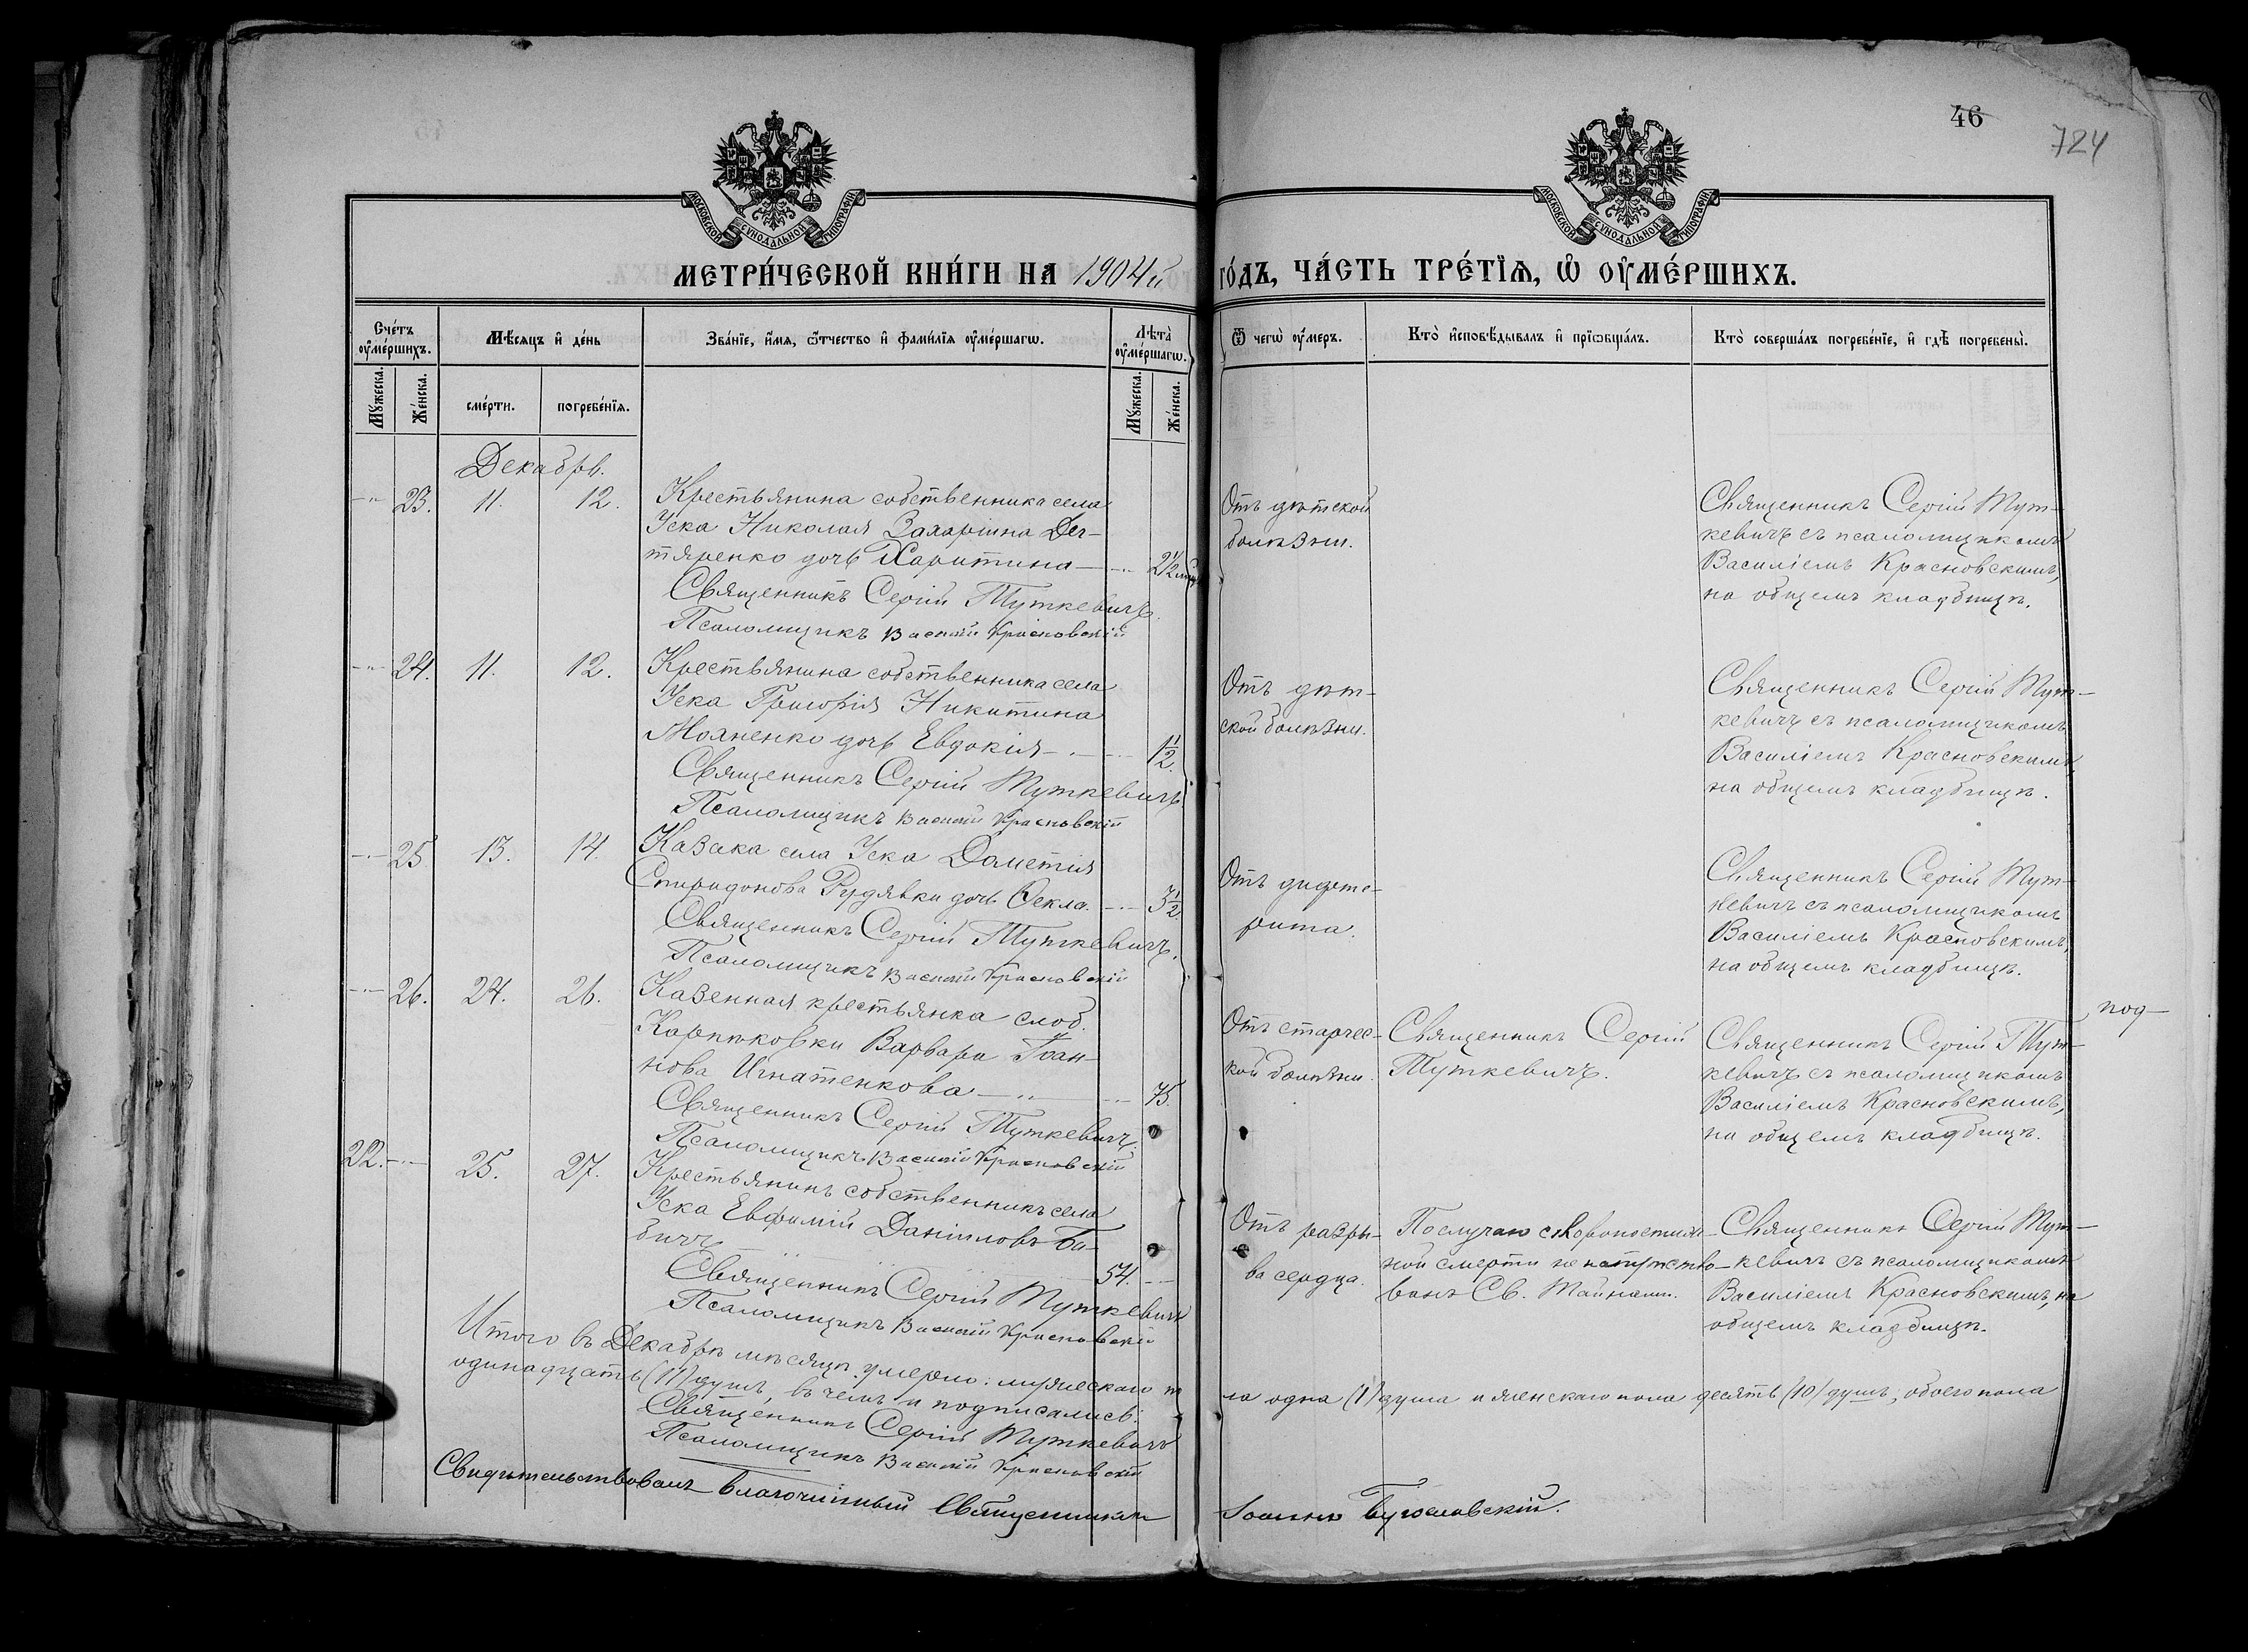 46
724
МОСКОВСКОЙ СѴНОДАЛЬНОЙ ТИПОГРАФІИ
МОСКОВСКОЙ СѴНОДАЛЬНОЙ ТИПОГРАФІИ
МЕТРИ́ЧЕСКОЙ КНИ́ГИ НА 1904й
ГО́ДЪ, ЧА́СТЬ ТРЕ́ТЇѦ, Ѡ҆ ОУ҆МЕ́РШИХЪ.
Сче́тъ оу҆ме́ршихъ.
Мѣ́сѧцъ и҆ де́нь
Зва́нїе, и҆́мѧ, ѻ҆́тчество и҆ фами́лїѧ оу҆ме́ршагѡ.
Лѣ́та оу҆ме́ршагѡ.
Ѿ чегѡ̀ оу҆́меръ.
Кто̀ и҆сповѣ́дывалъ и҆ прїѡбща́лъ.
Кто̀ соверша́лъ погребе́нїе, и҆ гдѣ̀ погребены̀.
Мꙋ́жеска.
Же́нска.
сме́рти.
погребе́нїѧ.
Мꙋ́жеска.
Же́нска.
Декабрь.
-"- 23. 11. 12. Крестьянина собственника села
Уска Николая Захаріина Дег-
тяренко дочь Харитина - 2½ мѣс
Священникъ Сергій Туткевичъ.
Псаломщикъ Василій Красновскій
Отъ дѣтской
болѣзни.
Священникъ Сергій Тут-
кевичъ съ псаломщикомъ
Василіемъ Красновскимъ,
на общемъ кладбищѣ.
-"- 24. 11. 12. Крестьянина собственника села
Уска Григорія Никитина
дочь Евдокія - 1½.
Священникъ Сергій Туткевичъ
Псаломщикъ Василій Красновскій
Отъ дѣт-
ской болѣзни.
Священникъ Сергій Тут-
кевичъ съ псаломщикомъ
Василіемъ Красновскимъ,
на общемъ кладбищѣ.
-"- 25 13. 14. Казака села Уска Дометія
Спиридонова Рудявки дочь Ѳекла. - 3½.
Священникъ Сергій Туткевичъ.
Псаломщикъ Василій Красновскій
Отъ дифте-
рита.
Священникъ Сергій Тут-
кевичъ съ псаломщикомъ
Василіемъ Красновскимъ,
на общемъ кладбищѣ.
-"- 26. 24. 26. Казенная крестьянка слоб.
Варвара Іоан-
нова Игнатенкова - 75.
Священникъ Сергій Туткевичъ.
Псаломщикъ Василій Красновскій
Отъ старчес-
кой болѣзни.
Священникъ Сергій
Туткевичъ.
Священникъ Сергій Тут-
кевичъ съ псаломщикомъ
Василіемъ Красновскимъ,
на общемъ кладбищѣ.
под-
22. -"- 25. 27. Крестьянинъ собственникъ села
Уска Евфимій Даніиловъ Ба-
бичъ 54. -
Священникъ Сергій Туткевичъ
Псаломщикъ Василій Красновскій
Отъ разры-
ва сердца.
По случаю скоропостиж-
ной смерти не напутство-
ванъ Св. Тайнами.
Священникъ Сергій Тут-
кевичъ съ псаломщикомъ
Василіемъ Красновскимъ, на
общемъ кладбищѣ.
Итого въ Декабрѣ мѣсяцѣ умерло: мужескаго по
ла одна (1) душа и женскаго пола десять (10) душъ, обоего пола
одинадцать (11) душъ, въ чемъ и подписались:
Священникъ Сергій Туткевичъ
Псаломщикъ Василій Красновскій
Свидѣтельствовалъ Благочинный Священникъ
Іоаннъ Бугославскій.